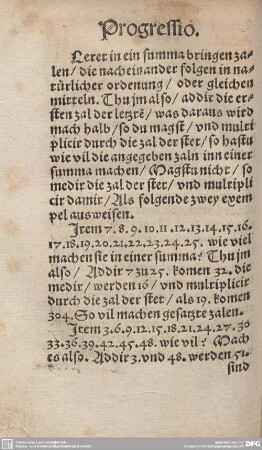 Progressio.
Leret in ein summa bringen za-
len/ die nach einander folgen in na-
türlicher ordenung/ oder gleichen
mitteln. Thu jm also/ addir die er-
sten zal der letzte/ was daraus wird
mach halb/ so du magst/ vnd multi
plicir durch die zal der stet/ so hastu
wie vil die angegeben zaln inn einer
summa machen/ Magstu nicht/ so
medir die zal der stet/ vnd multipli
cir damit/ Als folgende zwey exem
pel ausweisen.
Item 7. 8. 9. 10. 11. 12. 13. 14. 15. 16.
17. 18. 19. 20. 21. 22. 23. 24. 25. wie viel
machen sie in einer summa? Thu jm
also/ Addir 7 zu 25. komen 32. die
medir/ werden 16/ vnd multiplicir
durch die zal der stet/ als 19. komen
304. So vil machen gesatzte zalen.
Item 3. 6. 9. 12. 15. 18. 21. 24. 27. 30
33. 36. 39. 42. 45. 48. wie vil? Mach
es also. Addir 3. vnd 48. werden 51.
sind
DFG